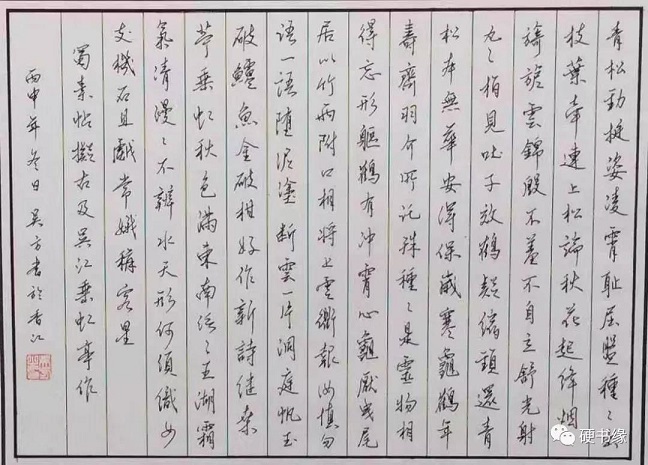 青松勁挺姿凌霄耻屈盤種々出
枝葉牽連上松端秋花起絳烟
旖旎雲錦殷不羞不自立舒光射
丸々柏見吐子效鶴疑縮頸還青
松本無華安得保歲寒龜鶴年
壽齊羽介所託殊種々是靈物相
得忘形軀鶴有沖霄心龜厭曳尾
居以竹兩附口相將上雲衢報汝慎勿
語一語墮泥塗斷雲一片洞庭帆玉
破鱸魚金破柑好作新詩繼桑
苧垂虹秋色滿東南泛々五湖霜
氣清漫々不辨水天形何須織女
支機石且戲常娥稱客星
蜀素帖擬古及吳江垂虹亭作
丙申年冬日吳方書於香江
硬书缘